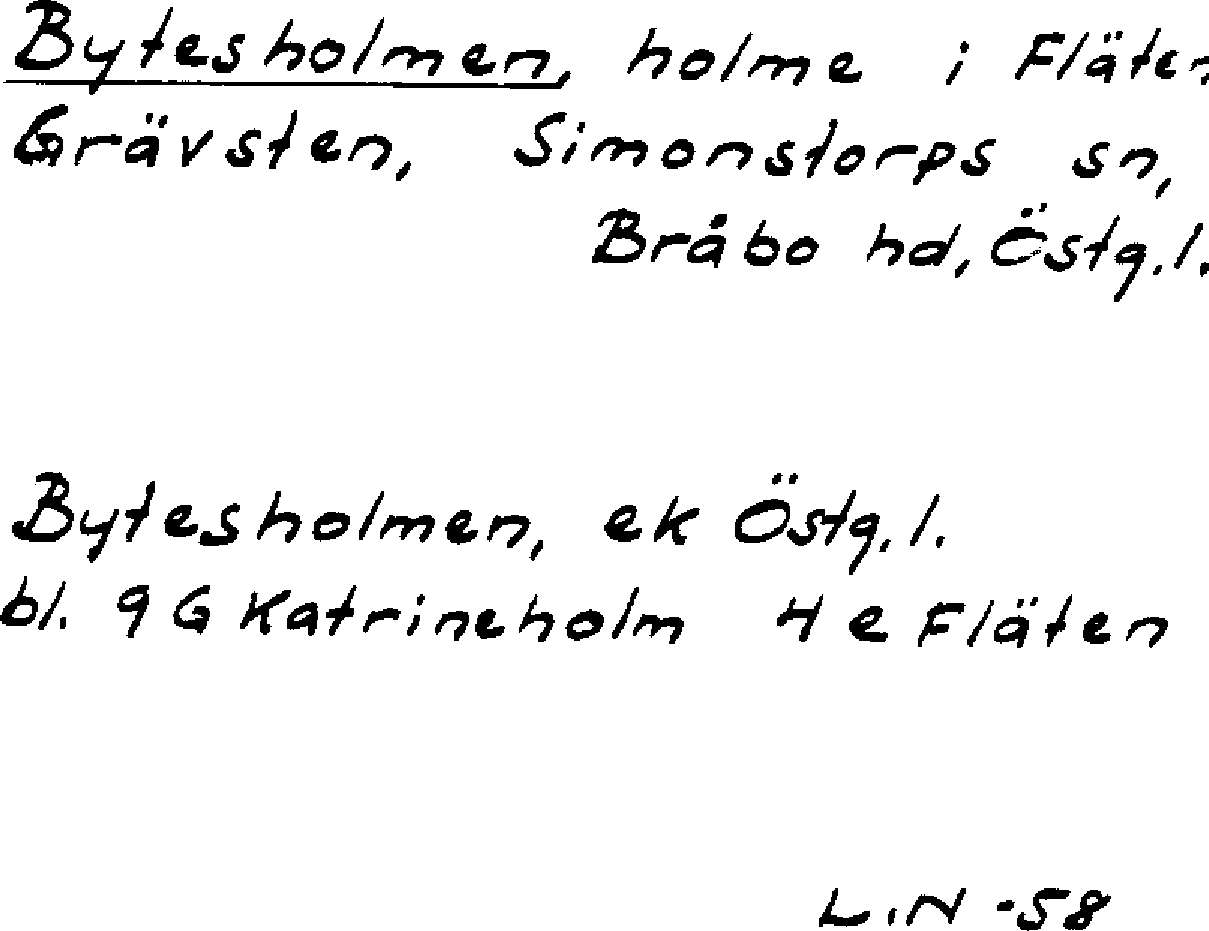 Bytesholmen, holme i Fläten
Grävsten, Simonstorps sn,
Bråbo hd, Östg.l.
Bytesholmen, ek Östg.l.
bl. 9G Katrineholm 4e Fläten
L.N -58